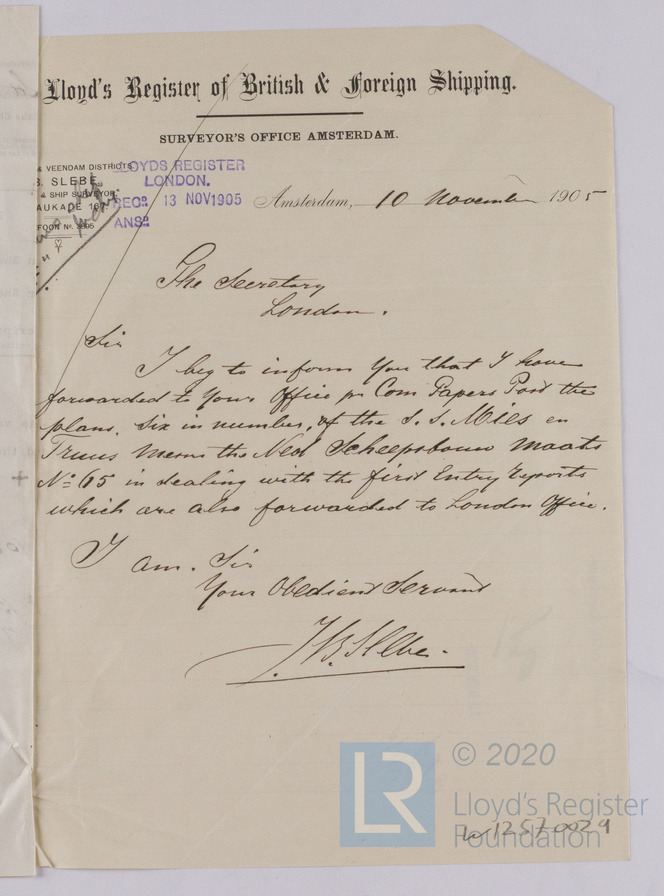 Lloyd's Register of British & Foreign Shipping.
SURVEYOR'S OFFICE AMSTERDAM.
& VEENDAM DISTRICTS
B. SLEBE,
& SHIP SURVEYOR
AUKADE 167
FOON No. 3695
LOYDS REGISTER
LONDON.
REC'D. 13 NOV 1905
ANS'D.
Amsterdam, 10 November 1905
The Secretary
London.
Sir
I beg to inform You that I have
forwarded to Your Office pr Com Papers Post the
plans. six in number, of the S.S. Mies en
Truus Messrs the Ned Scheepsbouw Maats
No 65 in dealing with the first Entry Reports
which are also forwarded to London Office.
I am. Sir
Your Obedient Servant
J.B. Slebe.
LR © 2020
Lloyd's Register
Foundation
W1257-0029